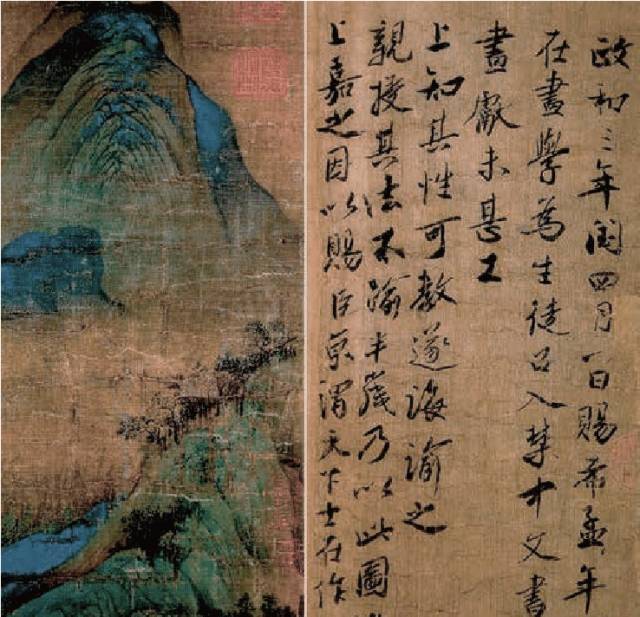 政和三年閏四月一日賜希孟年
在畫學為生徒召入禁中文書
畫獻未甚工
上知其性可教遂誨諭之
親授其法不踰半歲乃以此圖
上嘉之因以賜臣京謂天下士在作